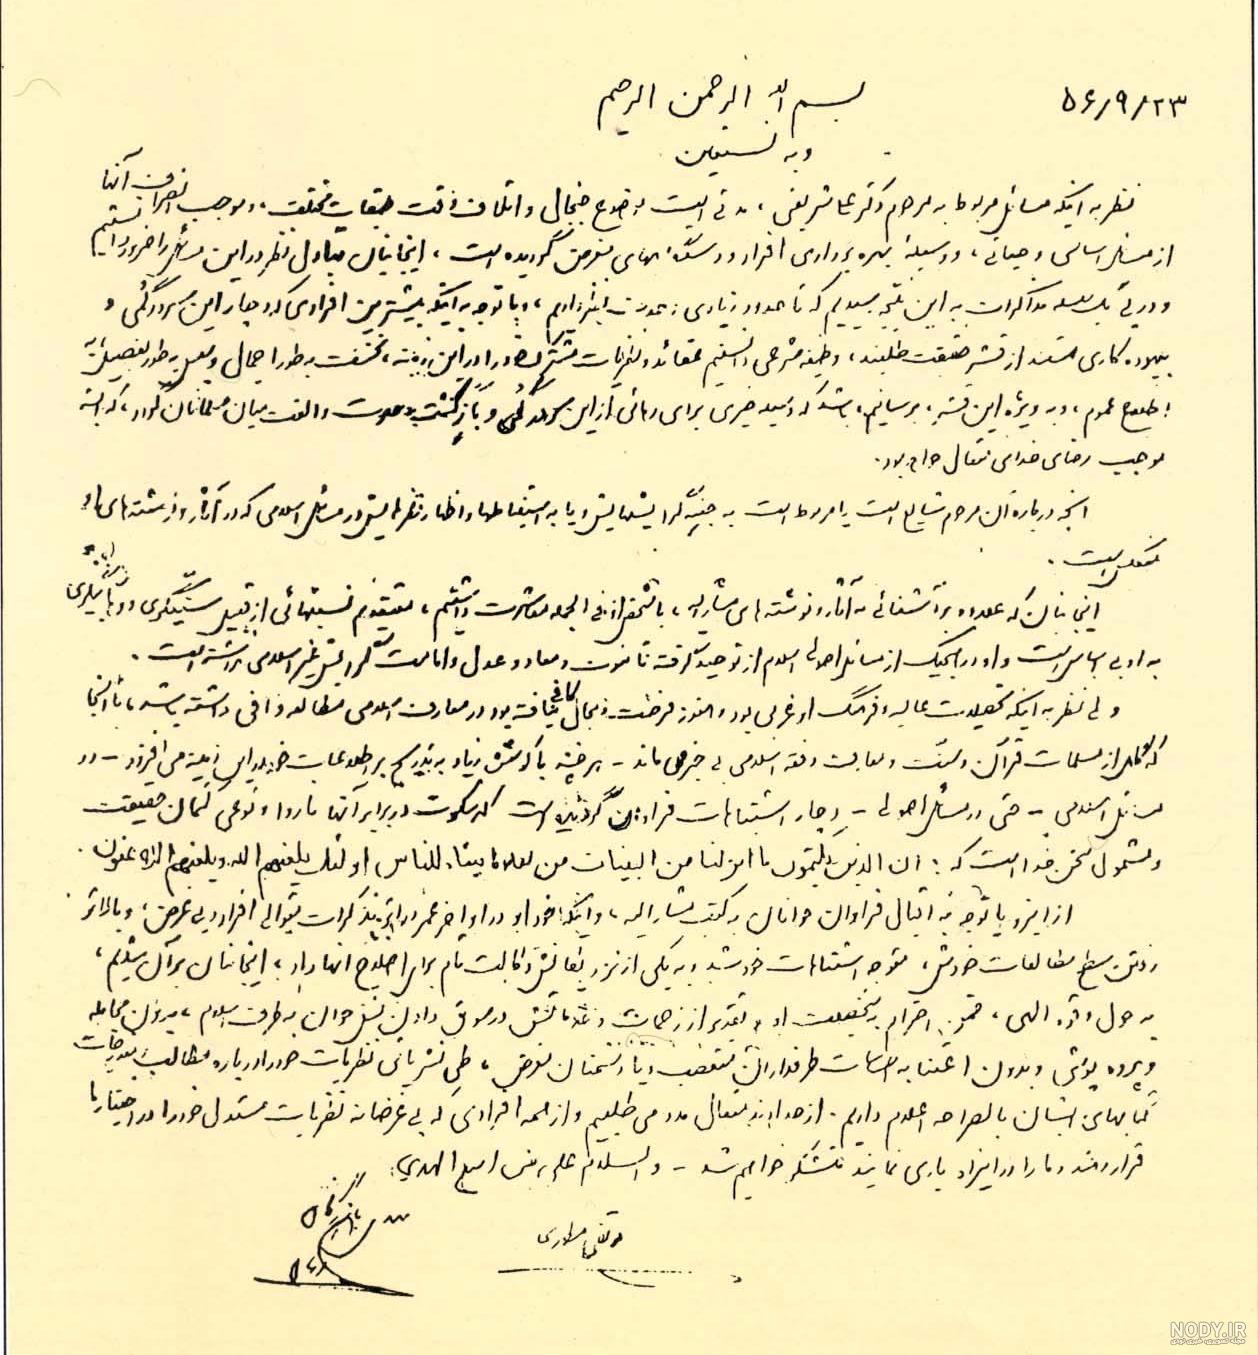 ۵۶/۹/۲۳
بسم الله الرحمن الرحیم
و به نستعین
نظر به اینکه مسائل مربوط به مرحوم دکتر علی شریعتی، مدتی است موضوع جنجال و اتلاف وقت طبقات مختلف، و موجب انصراف آنها
از مسائل اساسی و حیاتی، و وسیلهٔ بهره برداری افراد و دستگاههای مغرض گردیده است، اینجانبان تبادل نظر در این مسائل را ضروری دانستیم
و در پی یک سلسله مذاکرات به این نتیجه رسیدیم که تا حدود زیادی وحدت نظر داریم، و با توجه به اینکه بیشترین افرادی که دچار این سردرگمی و
بیهوده کاری هستند از قشر حقیقت طلبند، وظیفه شرعی دانستیم عقائد و نظریات مشترک خود را در این زمینه، نخست به طور اجمال و سپس به طور تفصیل به
اطلاع عموم، و به ویژه این قشر، برسانیم، باشد که وسیله خیری برای رهائی از این سردرگمی و بازگشت به وحدت و الفت میان مسلمانان گردد، که البته
موجب رضای خدای متعال خواهد بود.
آنچه درباره آن مرحوم شایع است یا مربوط است به جنبه گرایشهایش و یا به استنباطها و اظهار نظرهایش در مسائل اسلامی که در آثار و نوشته های او
منعکس است.
اینجانبان که علاوه بر آشنائی به آثار و نوشته های مشارالیه، با شخص او فی الجمله معاشرت داشتیم، معتقدیم نسبتهائی از قبیل سنیگری و وهابیگری
به او بی اساس است و او در هیچیک از مسائل اصولی اسلام از توحید گرفته تا نبوت و معاد و عدل و امامت گرایش غیر اسلامی نداشته است.
ولی نظر به اینکه تحصیلات عالیه و فرهنگ او غربی بود و هنوز فرصت و مجال کافی نیافته بود در معارف اسلامی مطالعه وافی داشته باشد، تا آنجا
که گاهی از مسلمات قرآن و سنت و معارف و فقه اسلامی بی خبر می ماند - هر چند با کوشش زیاد به تدریج بر اطلاعات خود در این زمینه می افزود - در
مسائل اسلامی - حتی در مسائل اصولی - دچار اشتباهات فراوان گردیده است که سکوت در برابر آنها ناروا و نوعی کتمان حقیقت
و مشمول سخن خدا است که: ان الذین یکتمون ما انزلنا من البینات من بعد ما بیناه للناس اولئک یلعنهم الله و یلعنهم اللاعنون.
از اینرو با توجه به اقبال فراوان جوانان به کتب مشارالیه، و اینکه خود او در اواخر عمر در اثر تذکرات متوالی افراد بی غرض، و بالاتر
رفتن سطح مطالعات خودش، متوجه اشتباهات خود شد و به یکی از نزدیکانش وکالت تام برای اصلاح آنها داد، اینجانبان بر آن شدیم،
به حول و قوه الهی، ضمن احترام به شخصیت او و تقدیر از زحمات و خدماتش در سوق دادن نسل جوان به طرف اسلام، بدون مجامله
و پرده پوشی و بدون اعتنا به احساسات طرفداران متعصب و یا دشمنان مغرض، طی نشریاتی نظریات خود را درباره مطالب و مندرجات
کتابهای ایشان بالصراحه اعلام داریم. از خداوند متعال مدد می طلبیم و از همه افرادی که بی غرضانه نظریات مستدل خود را در اختیار ما
قرار دهند و ما را در اینراه یاری نمایند متشکر خواهیم شد - والسلام علی من اتبع الهدی.
مرتضی مطهری
مهدی بازرگان
NODY.IR